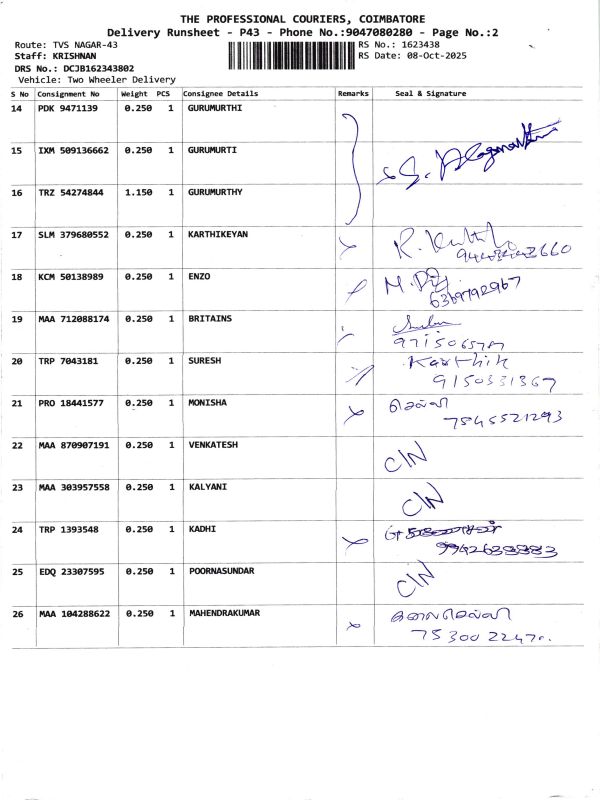 THE PROFESSIONAL COURIERS, COIMBATORE
Delivery Runsheet - P43 - Phone No.:9047080280 - Page No.:2
Route: TVS NAGAR-43 RS No.: 1623438
Staff: KRISHNAN RS Date: 08-Oct-2025
DRS No.: DCJB162343802
Vehicle: Two Wheeler Delivery
S No Consignment No Weight PCS Consignee Details Remarks Seal & Signature
14 PDK 9471139 0.250 1 GURUMURTHI
15 IXM 509136662 0.250 1 GURUMURTI
16 TRZ 54274844 1.150 1 GURUMURTHY
17 SLM 379680552 0.250 1 KARTHIKEYAN
18 KCM 50138989 0.250 1 ENZO
6369792967
19 MAA 712088174 0.250 1 BRITAINS
20 TRP 7043181 0.250 1 SURESH Karthik
9150331367
21 PRO 18441577 0.250 1 MONISHA செல்வி
7845521293
22 MAA 870907191 0.250 1 VENKATESH C/N
23 MAA 303957558 0.250 1 KALYANI C/N
24 TRP 1393548 0.250 1 KADHI
25 EDQ 23307595 0.250 1 POORNASUNDAR C/N
26 MAA 104288622 0.250 1 MAHENDRAKUMAR கலைசெல்வி